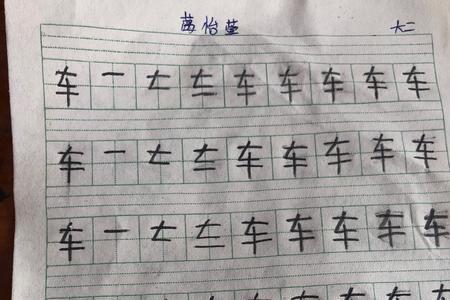 怡 大二
车 一 车 车 车 车 车
车 一 车 车 车 车 车
车 一 车 车 车 车 车